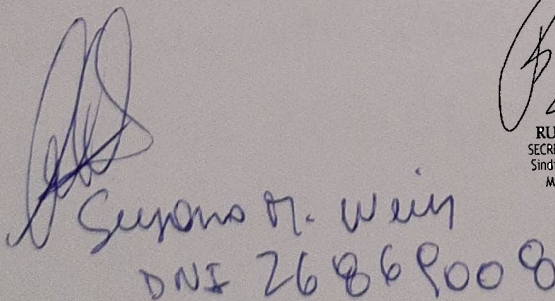 RU
SECRE
Sind
M
Susana M. Weis
DNI 26869008